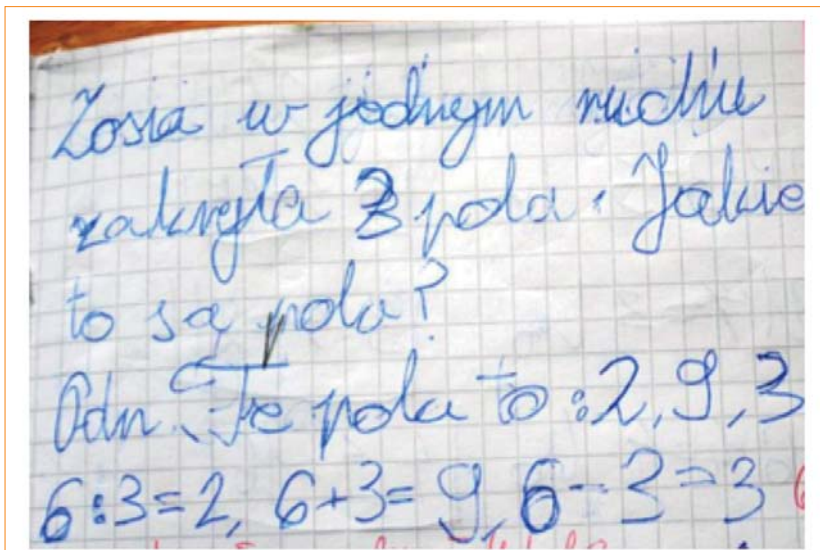 Zosia w jednym ruchu
zakryła 3 pola. Jakie
to są pola?
Odp. Te pola to: 2, 9, 3
6:3=2, 6+3=9, 6-3=3